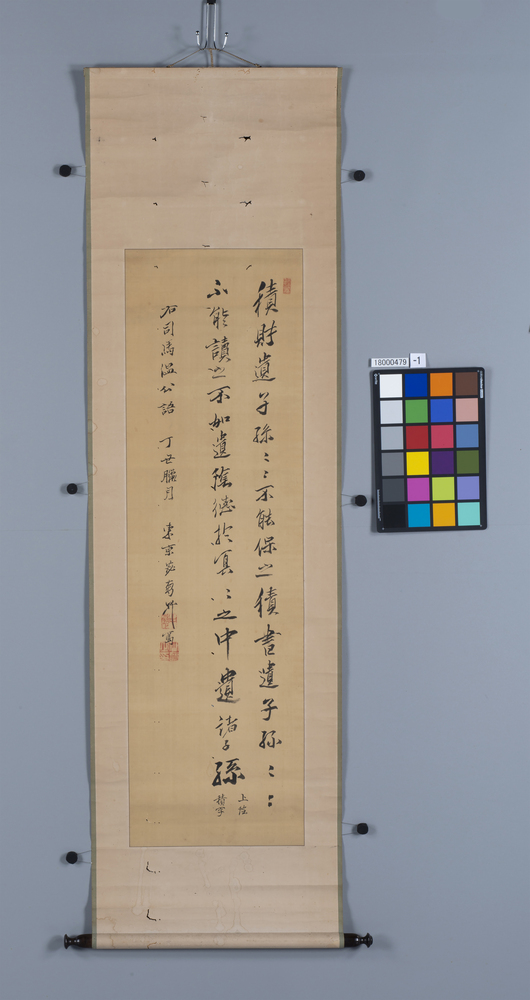 積財遺子孫〻〻不能保之積書遺子孫〻〻
不能讀之不如遺陰德於冥〻之中遺諸子孫
上 陰
積字
右司馬温公語 丁丑臘月 東京
18000479 -1